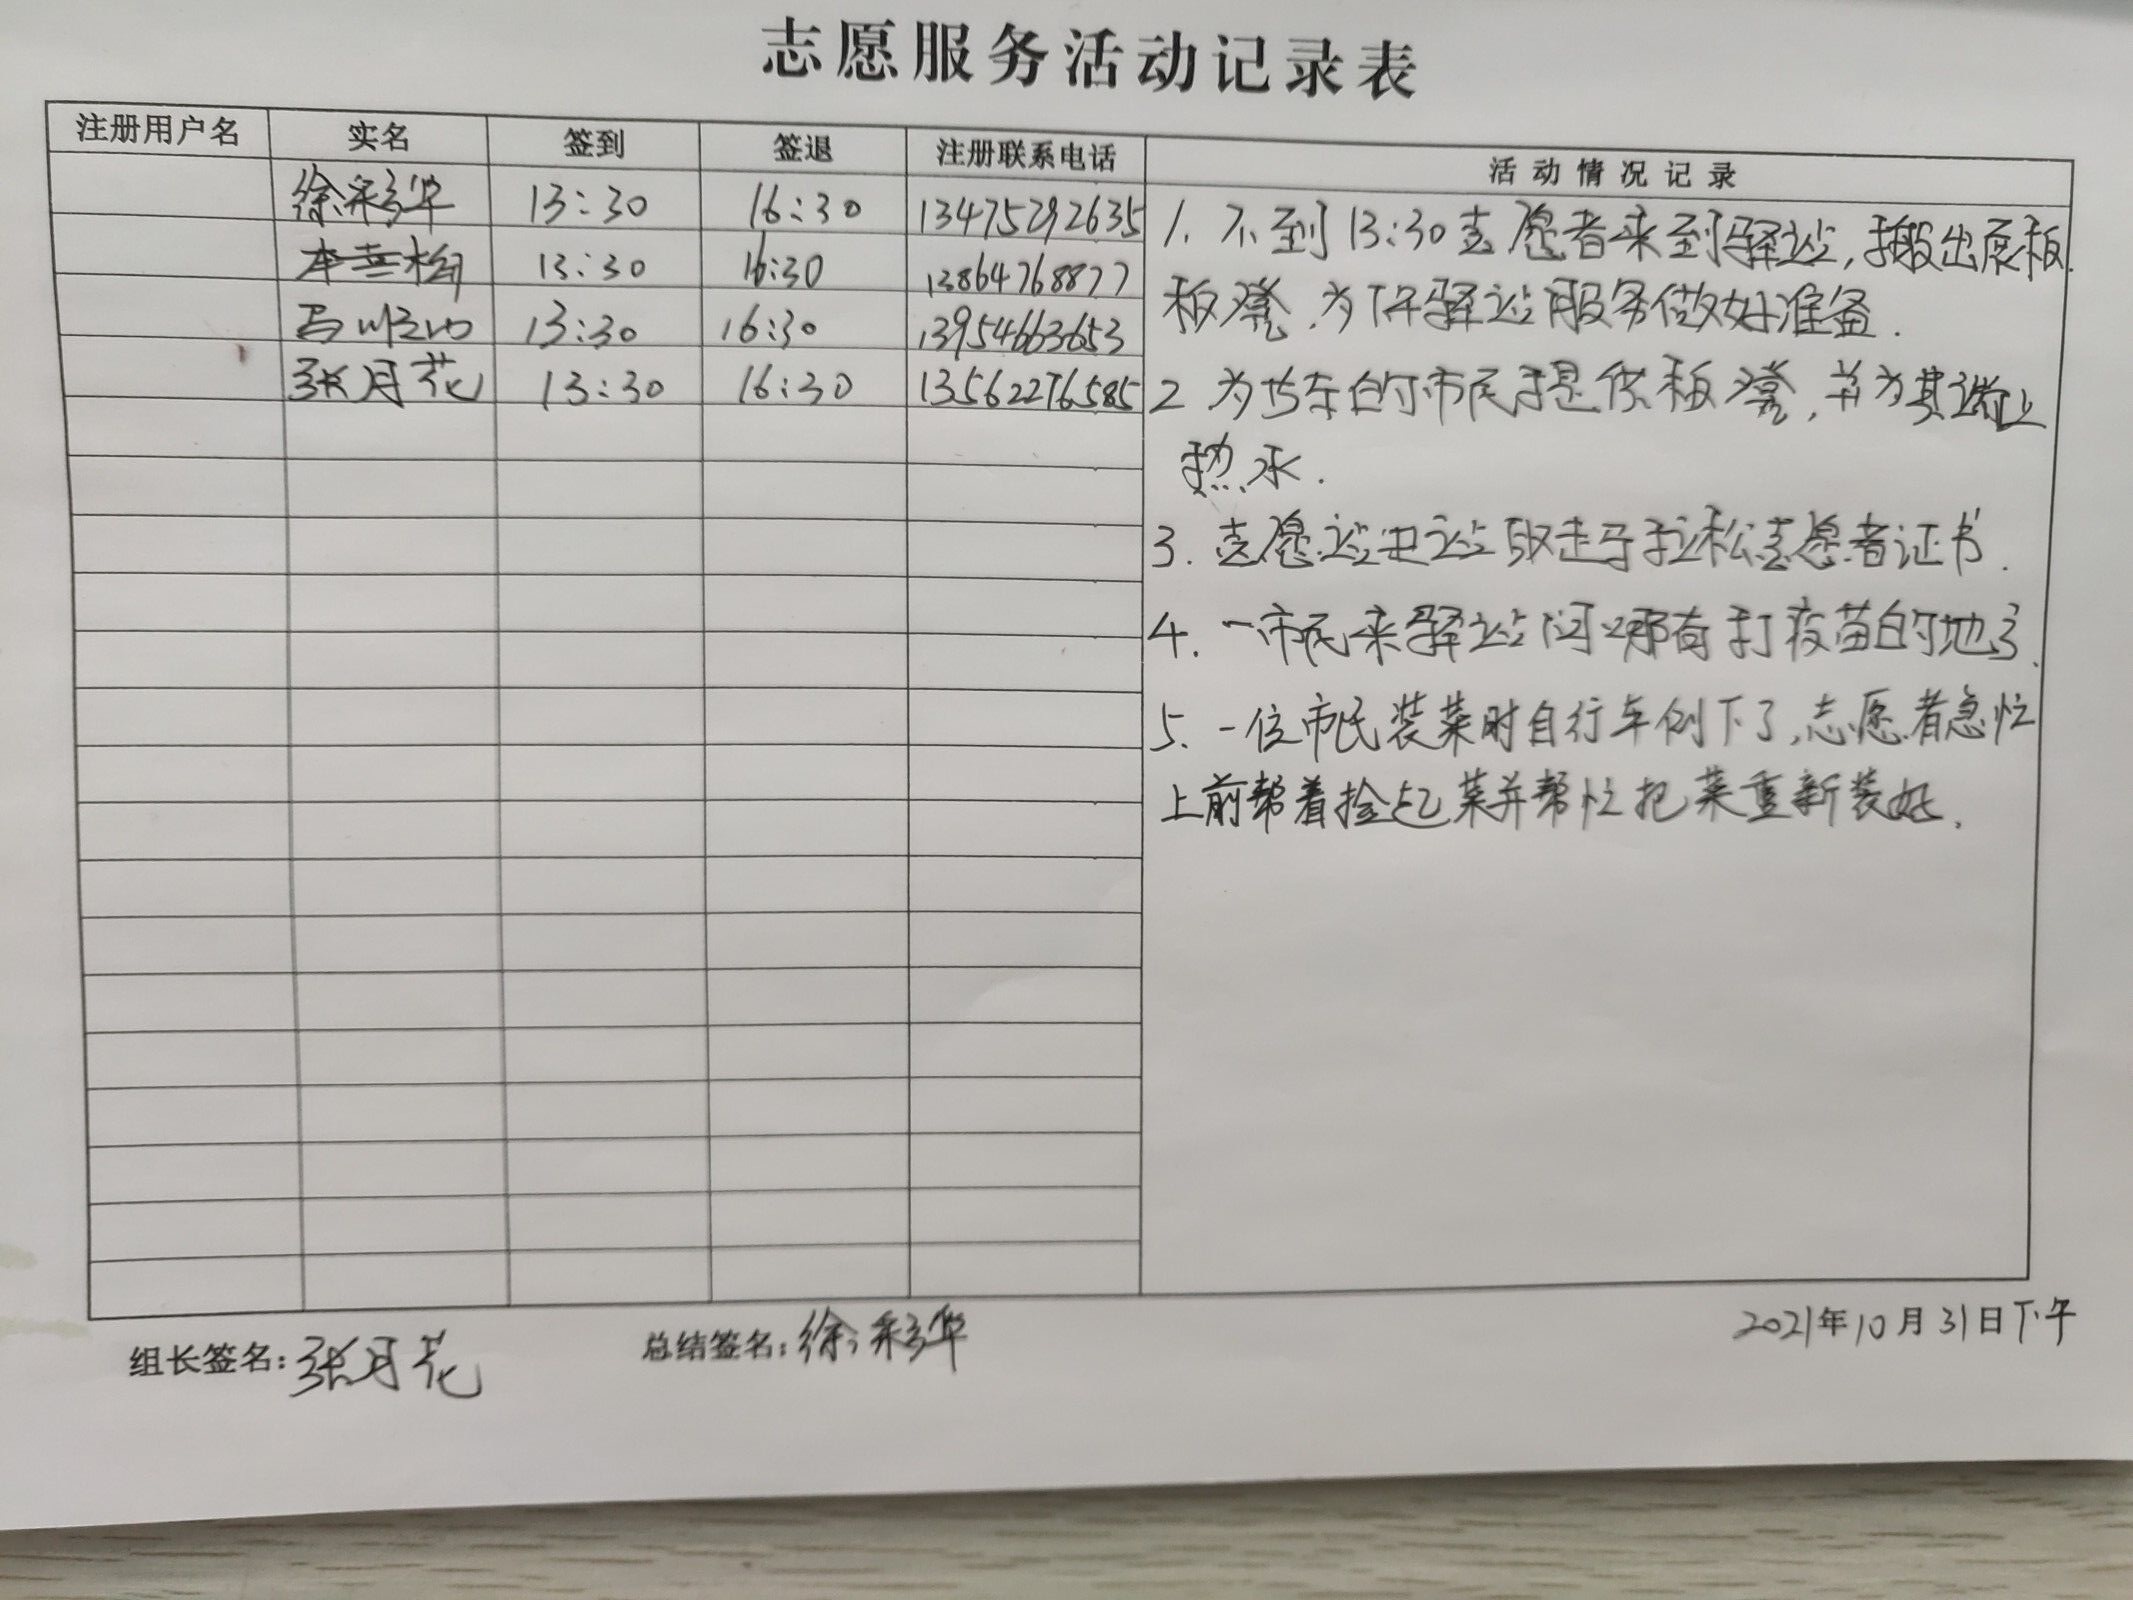 志愿服务活动记录表
注册用户名 实名 签到 签退 注册联系电话 活动情况记录
徐彩华 13:30 16:30 13475292635
13:30 16:30 13864768877
13:30 16:30 13954663653
张月花 13:30 16:30 13562276585
1. 不到13:30志愿者来到驿站,搬出展板.
板凳.为下午驿站服务做好准备.
2 为等车的市民提供板凳,并为其端上
热水.
3. 志愿者进站取走马拉松志愿者证书.
4. 一市民来驿站问哪有打疫苗的地方.
5. 一位市民装菜时自行车倒下了,志愿者急忙
上前帮着捡起菜并帮忙把菜重新装好.
组长签名:张月花 总结签名:徐彩华 2021年10月31日下午